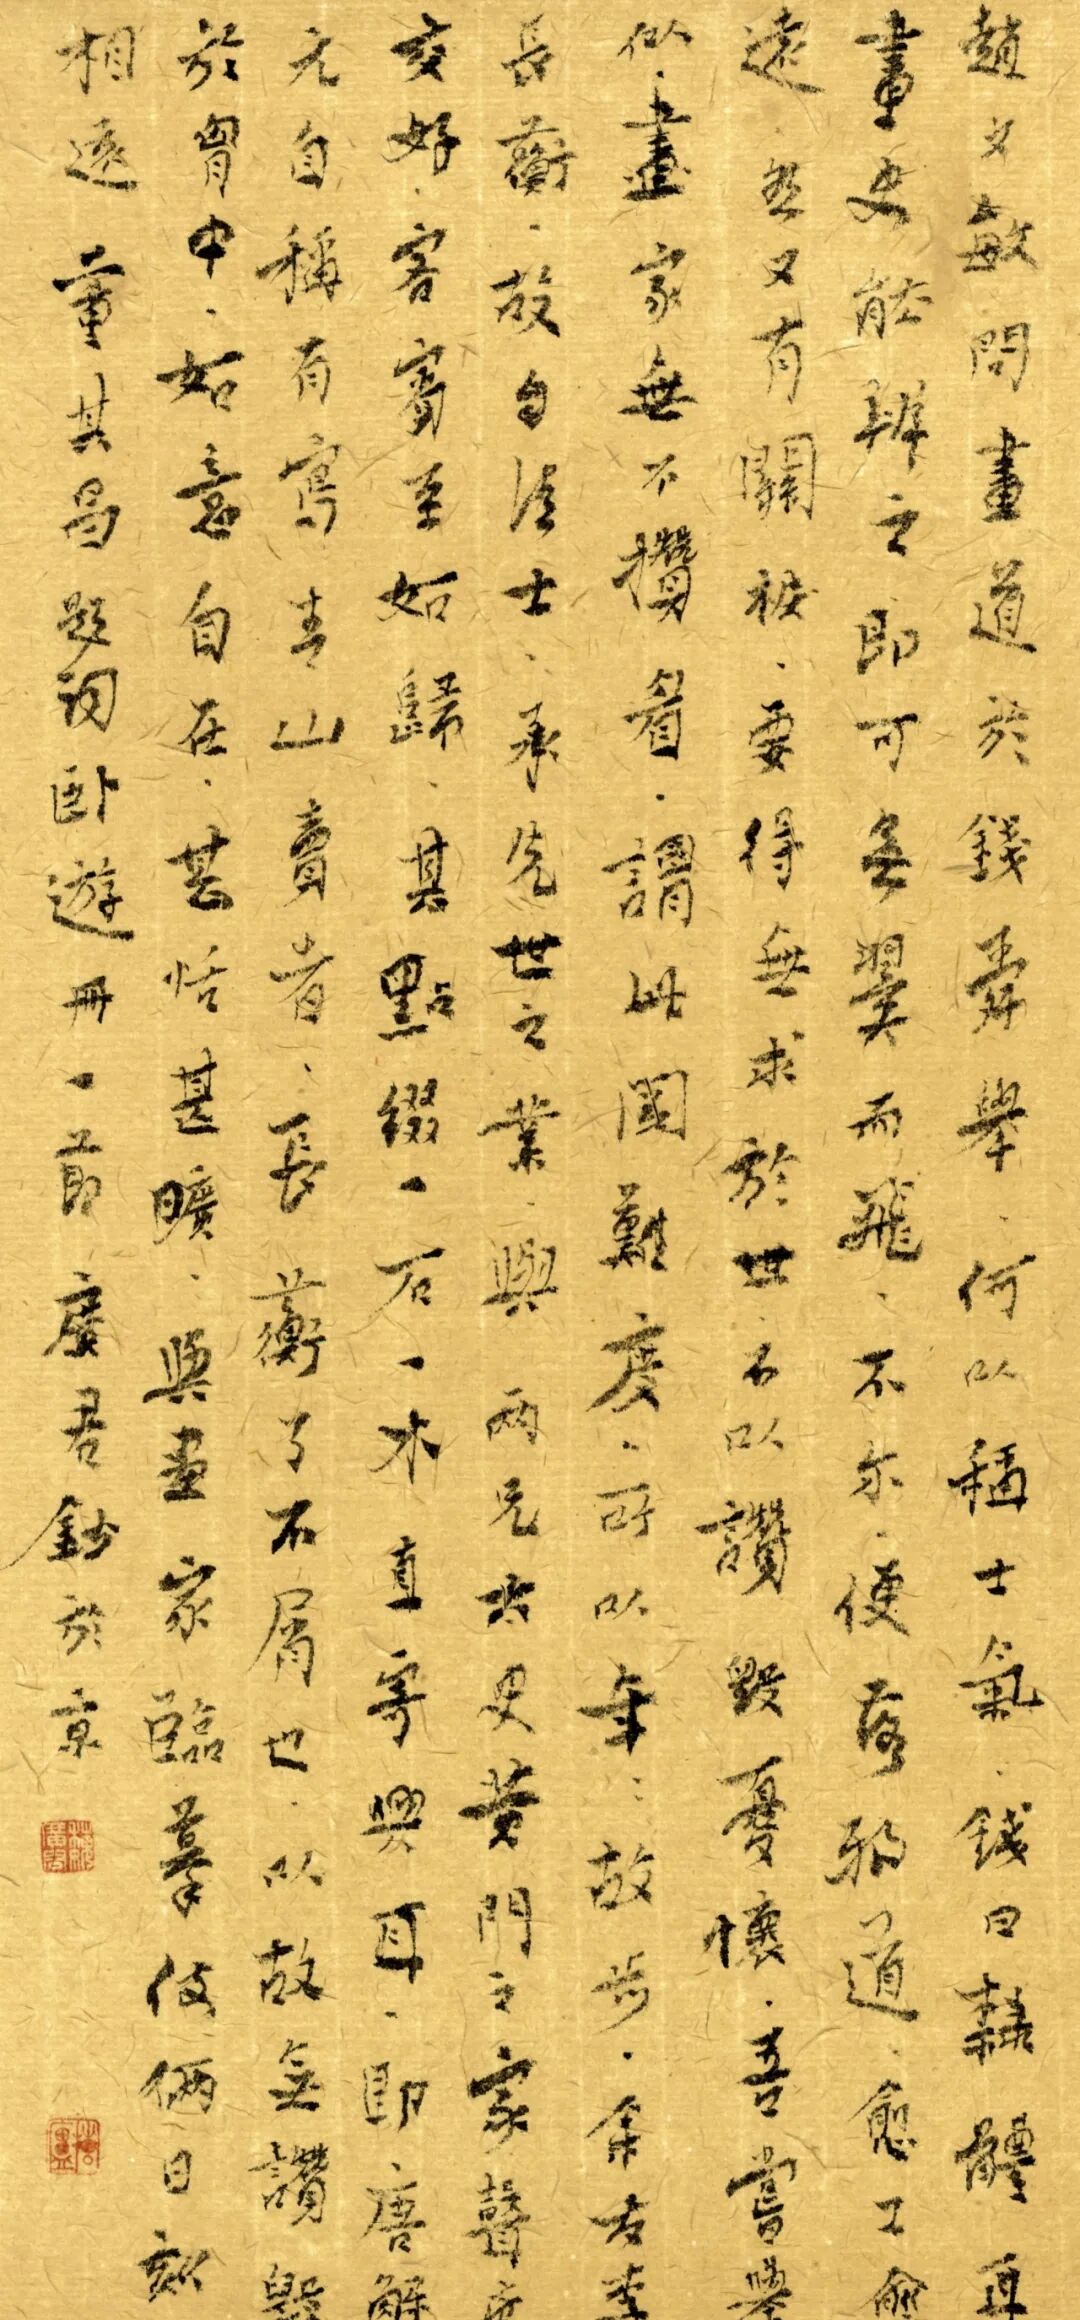 趙文敏問畫道於錢舜舉何以稱士氣錢曰隸體耳
畫史能辨之即可無翼而飛不尔便落邪道愈工愈
遠然又有關棙要得無求於世不以讚毀憂懷吾嘗舉
似畫家無不攢眉謂此關難度所以年年故步余友李
長蘅故自法士承先世之業與兩兄太史黃門之家聲
交好客賓至如歸其點綴一石一木直寄興耳即唐解
元自稱有寫青山賣者長蘅了不屑也以故無讚毀
於胷中如意自在甚恬甚曠與畫家臨摹伎倆日劫
相遠董其昌題詞臥遊冊一節廣君鈔於京